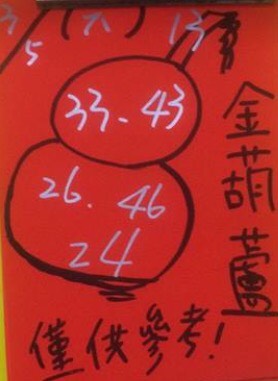 3/5 (六)
33-43
26.46
24
金葫蘆
僅供參考!